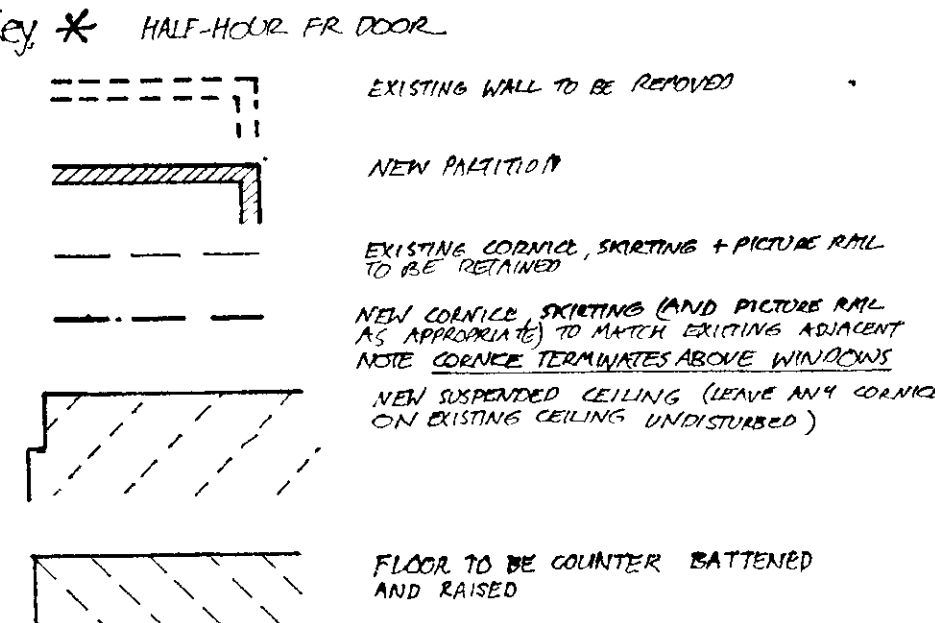 Key * HALF-HOUR FR DOOR
EXISTING WALL TO BE REMOVED
NEW PARTITION
EXISTING CORNICE, SKIRTING + PICTURE RAIL
TO BE RETAINED
NEW CORNICE, SKIRTING (AND PICTURE RAIL
AS APPROPRIATE) TO MATCH EXISTING ADJACENT
NOTE CORNICE TERMINATES ABOVE WINDOWS
NEW SUSPENDED CEILING (LEAVE ANY CORNICE
ON EXISTING CEILING UNDISTURBED)
FLOOR TO BE COUNTER BATTENED
AND RAISED